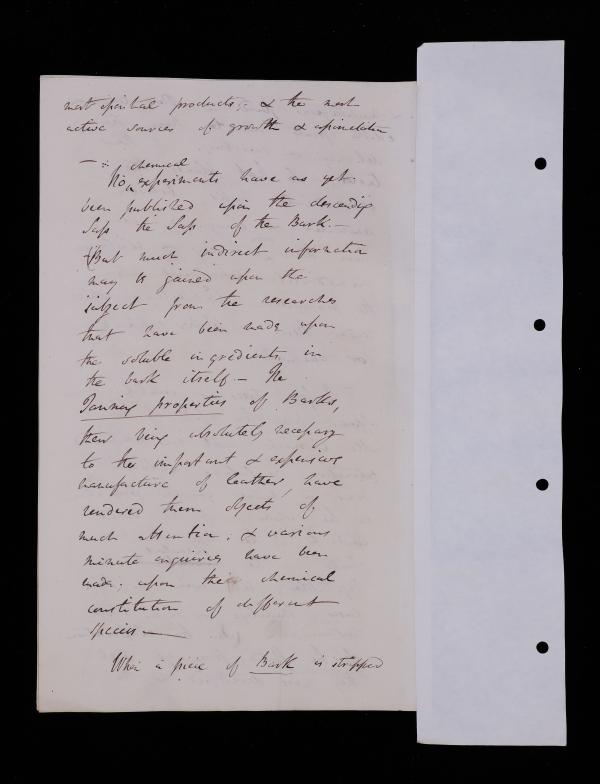 most essential products; & the most
active sources of growth & 
— chemical
No experiments have as yet
been published upon the descending
Sap the Sap of the Bark.—
But much indirect information
may be gained upon the
subject from the researches
that have been made upon
the soluble ingredients in
the bark itself — The
Tanning properties of Barks,
their being absolutely necessary
to the important & expensive
manufacture of leather, have
rendered them objects of
much attention; & various
minute enquiries have been
made upon the chemical
constitution of different
species —
When a piece of Bark is stripped